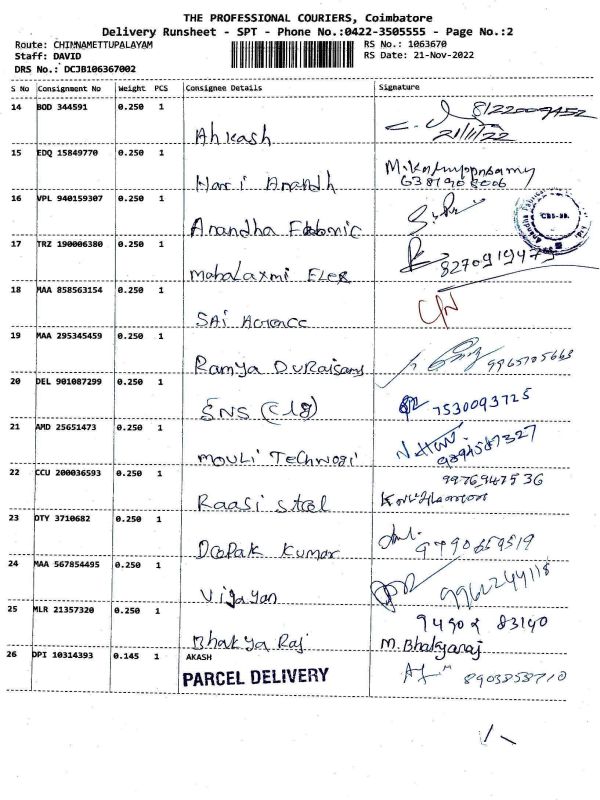 THE PROFESSIONAL COURIERS, Coimbatore
Delivery Runsheet - SPT - Phone No.:0422-3505555 - Page No.:2
Route: CHINNAMETTUPALAYAM
RS No.: 1063670
Staff: DAVID
RS Date: 21-Nov-2022
DRS No.: DCJB106367002
S No Consignment No Weight PCS Consignee Details Signature
14 BOD 344591 0.250 1 Ahkash 8122009452
21/11/22
15 EDQ 15849770 0.250 1 Hari Anandh
6381908006
16 VPL 940159307 0.250 1 Anandha
17 TRZ 190006380 0.250 1 Mahalaxmi Elex 8270919475
18 MAA 858563154 0.250 1 SAi
19 MAA 295345459 0.250 1 Ramya DuRaisamy 9965705663
20 DEL 901087299 0.250 1 SNS (Clg) 7530093725
21 AMD 25651473 0.250 1 MOULi 9894587327
22 CCU 200036593 0.250 1 Raasi Steel 9976947536
23 DTY 3710682 0.250 1 Deepak Kumar 9790659519
24 MAA 567854495 0.250 1 Vijayan 9962244118
25 MLR 21357320 0.250 1 Bhakya Raj 94902 83140
M. Bhakyaraj
26 DPI 10314393 0.145 1 AKASH 8903858710
PARCEL DELIVERY